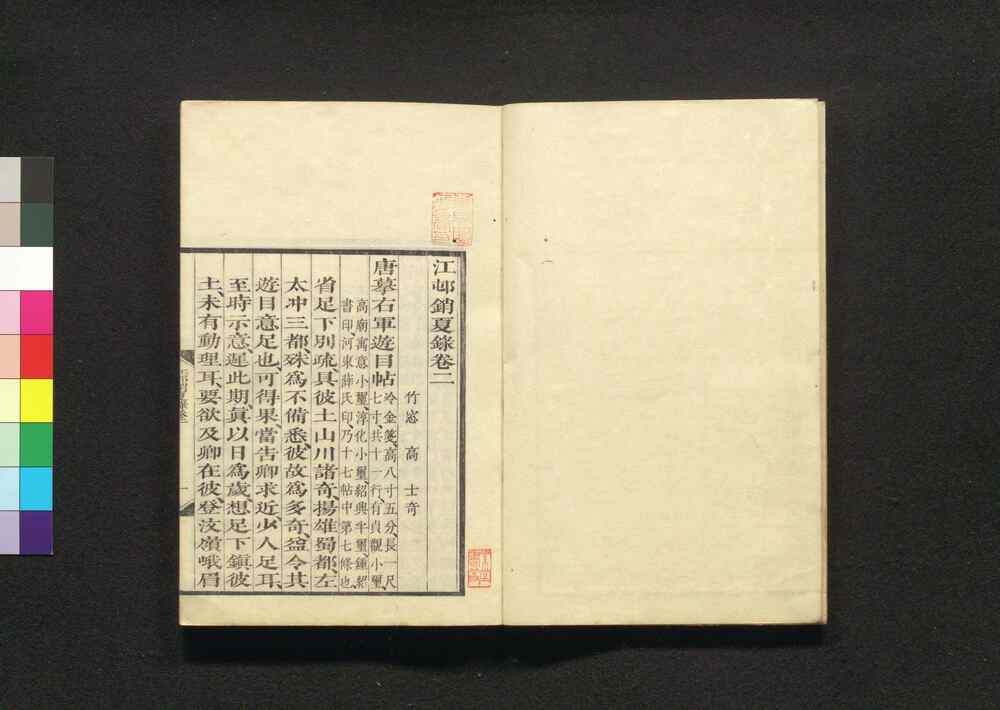 江邨銷夏錄卷二
竹窓 高 士奇
唐摹右軍遊目帖
冷金箋、高八寸五分、長一尺
七寸、共十一行、有貞觀小璽、
高廟寓意小璽、淳化小璽、紹興半璽、鍾紹
書印、河東薛氏印、乃十七帖中第七條也、
省足下別疏、具彼土山川諸奇、揚雄蜀都、左
太冲三都、殊爲不備、悉彼故爲多奇、益令其
遊目意足也、可得果、當告卿求近少人足耳、
至時示意、遲此期、眞以日爲歲、想足下鎭彼
土、未有動理耳、要欲及卿在彼、登汶嶺峨眉